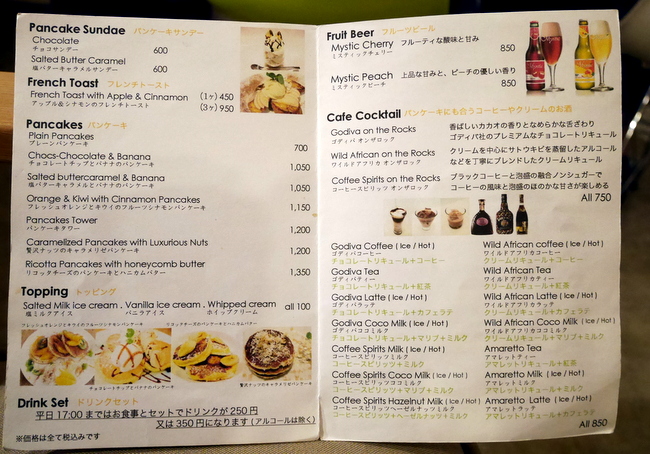 Pancake Sundae パンケーキサンデー
Chocolate
チョコサンデー 600
Salted Butter Caramel
塩バターキャラメルサンデー 600
French Toast フレンチトースト
French Toast with Apple & Cinnamon (1ヶ) 450
アップル&シナモンのフレンチトースト (3ヶ) 950
Pancakes パンケーキ
Plain Pancakes
プレーンパンケーキ 700
Chocs-Chocolate & Banana
チョコレートチップとバナナのパンケーキ 1,050
Salted buttercaramel & Banana
塩バターキャラメルとバナナのパンケーキ 1,050
Orange & Kiwi with Cinnamon Pancakes
フレッシュオレンジとキウイのフルーツシナモンパンケーキ 1,150
Pancakes Tower
パンケーキタワー 1,200
Caramelized Pancakes with Luxurious Nuts
贅沢ナッツのキャラメリゼパンケーキ 1,200
Ricotta Pancakes with honeycomb butter
リコッタチーズのパンケーキとハニカムバター 1,350
Topping トッピング
Salted Milk ice cream . Vanilla ice cream . Whipped cream all 100
塩ミルクアイス バニラアイス ホイップクリーム
フレッシュオレンジとキウイのフルーツシナモンパンケーキ リコッタチーズのパンケーキとハニカムバター
チョコレートチップとバナナのパンケーキ 贅沢ナッツのキャラメリゼパンケーキ
Drink Set ドリンクセット
平日 17:00 まではお食事とセットでドリンクが 250 円
又は 350 円になります (アルコールは除く)
※価格は全て税込みです
Fruit Beer フルーツビール
Mystic Cherry フルーティな酸味と甘み
ミスティックチェリー 850
Mystic Peach 上品な甘みと、ピーチの優しい香り
ミスティックピーチ 850
Cafe Cocktail パンケーキにも合うコーヒーやクリームのお酒
Godiva on the Rocks 香ばしいカカオの香りとなめらかな舌ざわり
ゴディバ オンザロック ゴディバ社のプレミアムなチョコレートリキュール
Wild African on the Rocks クリームを中心にサトウキビを蒸留したアルコール
ワイルドアフリカ オンザロック などを丁寧にブレンドしたクリームリキュール
Coffee Spirits on the Rocks ブラックコーヒーと泡盛の融合ノンシュガーで
コーヒースピリッツ オンザロック コーヒーの風味と泡盛のほのかな甘さが楽しめる
All 750
Godiva Coffee ( Ice / Hot )
ゴディバコーヒー
チョコレートリキュール+コーヒー
Godiva Tea
ゴディバティー
チョコレートリキュール+紅茶
Godiva Latte ( Ice / Hot )
ゴディバラッテ
チョコレートリキュール+カフェラテ
Godiva Coco Milk ( Ice / Hot )
ゴディバココミルク
チョコレートリキュール+マリブ+ミルク
Coffee Spirits Milk ( Ice / Hot )
コーヒースピリッツミルク
コーヒースピリッツ+ミルク
Coffee Spirits Coco Milk ( Ice / Hot )
コーヒースピリッツココミルク
コーヒースピリッツ+マリブ+ミルク
Coffee Spirits Hazelnut Milk ( Ice / Hot )
コーヒースピリッツヘーゼルナッツミルク
コーヒースピリッツ+ヘーゼルナッツ+ミルク
Wild African coffee ( Ice / Hot )
ワイルドアフリカコーヒー
クリームリキュール+コーヒー
Wild African Tea
ワイルドアフリカティー
クリームリキュール+紅茶
Wild African Latte ( Ice / Hot )
ワイルドアフリカラッテ
クリームリキュール+カフェラテ
Wild African Coco Milk ( Ice / Hot )
ワイルドアフリカココミルク
クリームリキュール+マリブ+ミルク
Amaretto Tea ( Ice / Hot )
アマレットティー
アマレットリキュール+紅茶
Amaretto Milk ( Ice / Hot )
アマレットミルク
アマレットリキュール+ミルク
Amaretto Latte ( Ice / Hot )
アマレットラッテ
アマレットリキュール+カフェラテ
All 850